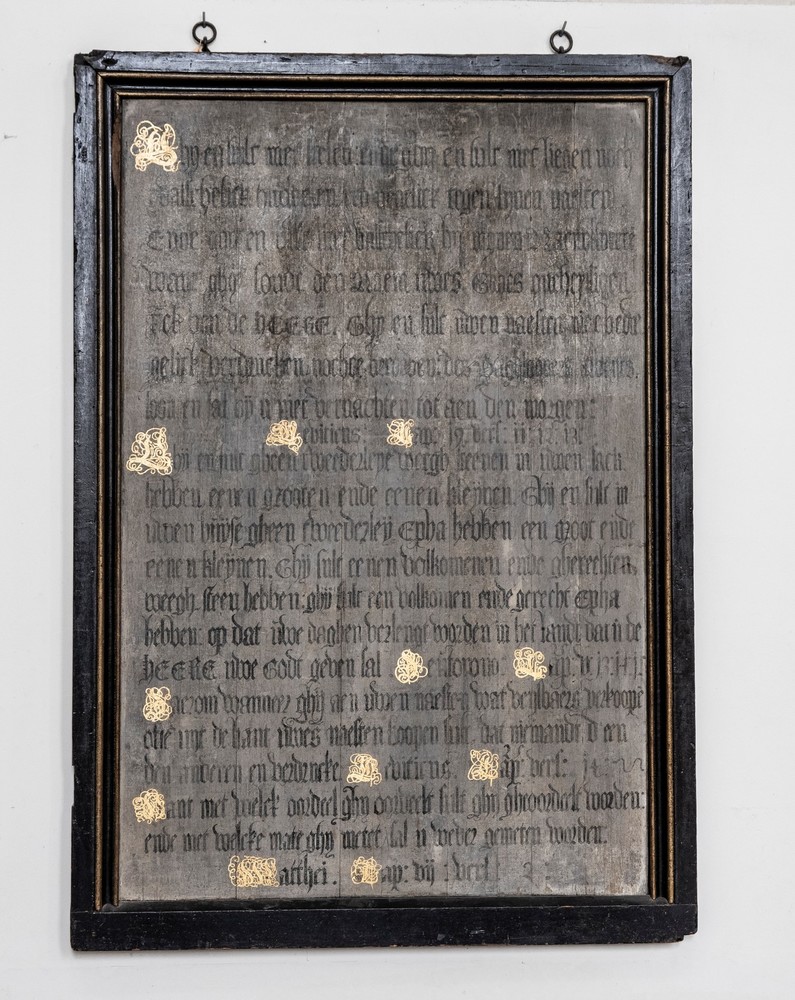 Ghy en sult niet stelen ende ghy en sult niet liegen noch
valschelick tegen synen naesten
Ende ghy en sult niet valschelick by mynen
want ghy soudt den Naem uwes Godts ontheyligen
Ick ben de HEERE. Ghy en sult uwen naesten niet
gelick verdrucken, nochte berooven: des
loon en sal by u niet vernachten tot aen den morgen:
Leviticus: Cap: 19. vers: 11: 12: 13
Ghij en sult gheen tweederleye weegh steenen in uwen sack
hebben eenen grooten ende eenen kleynen. Ghij en sult in
uwen huyse gheen tweederleij Epha hebben een groot ende
eenen kleynen. Ghij sult eenen volkomenen ende gherechten
weegh steen hebben: ghij sult een volkomen ende gerecht Epha
hebben: op dat uwe daghen verlengt worden in het landt dat u de
HEERE uwe Godt geven sal Cap:
Daerom wanneer ghij aen uwen naesten wat verkoopt
ofte uijt de hant uwes naesten koopen sult, dat niemandt d een
den anderen en verdrucke Leviticus. Cap: vers: 14:
Want met welck oordeel ghy oordeelt sult ghy gheoordeelt worden:
ende met welcke mate ghy metet sal u weder gemeten worden.
Matthei. Cap: vij : vers 2: